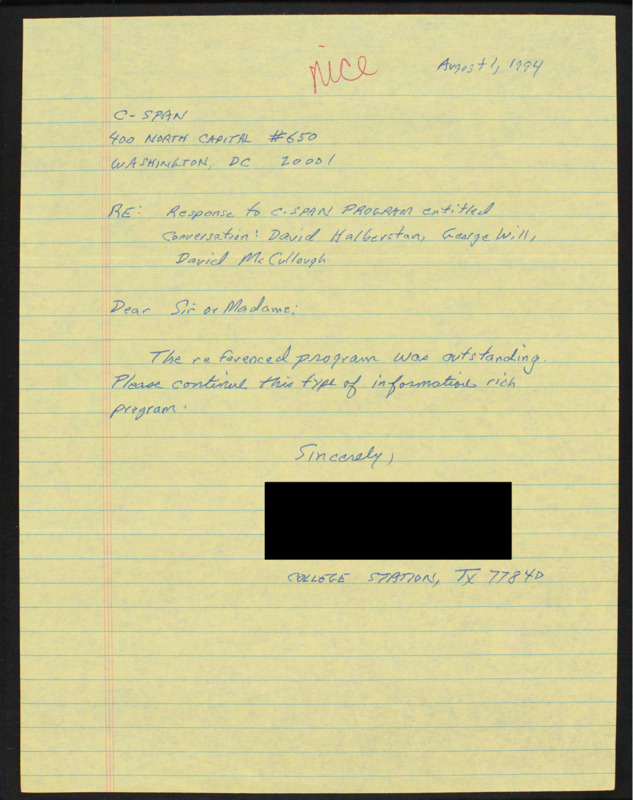 nice
August 1, 1994
C-SPAN
400 NORTH CAPITAL #650
WASHINGTON, DC 20001
RE: Response to C-SPAN PROGRAM entitled
Conversation: David Halberstan, George Will,
David McCullough
Dear Sir or Madame:
The referenced program was outstanding.
Please continue this type of information rich
program.
Sincerely,
COLLEGE STATION, TX 77840